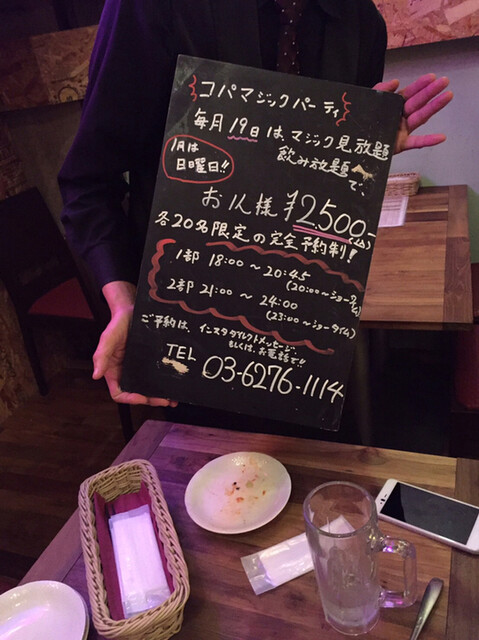 コパマジックパーティ
毎月19日は、マジック見放題
飲み放題で、
1月は
日曜日!!
お1人様 ¥2,500-(込)
各20名限定の完全予約制!
1部 18:00〜20:45
(20:00〜ショータイム)
2部 21:00〜24:00
(23:00〜ショータイム)
ご予約は、インスタダイレクトメッセージ、
もしくは、お電話で!!
TEL 03-6276-1114